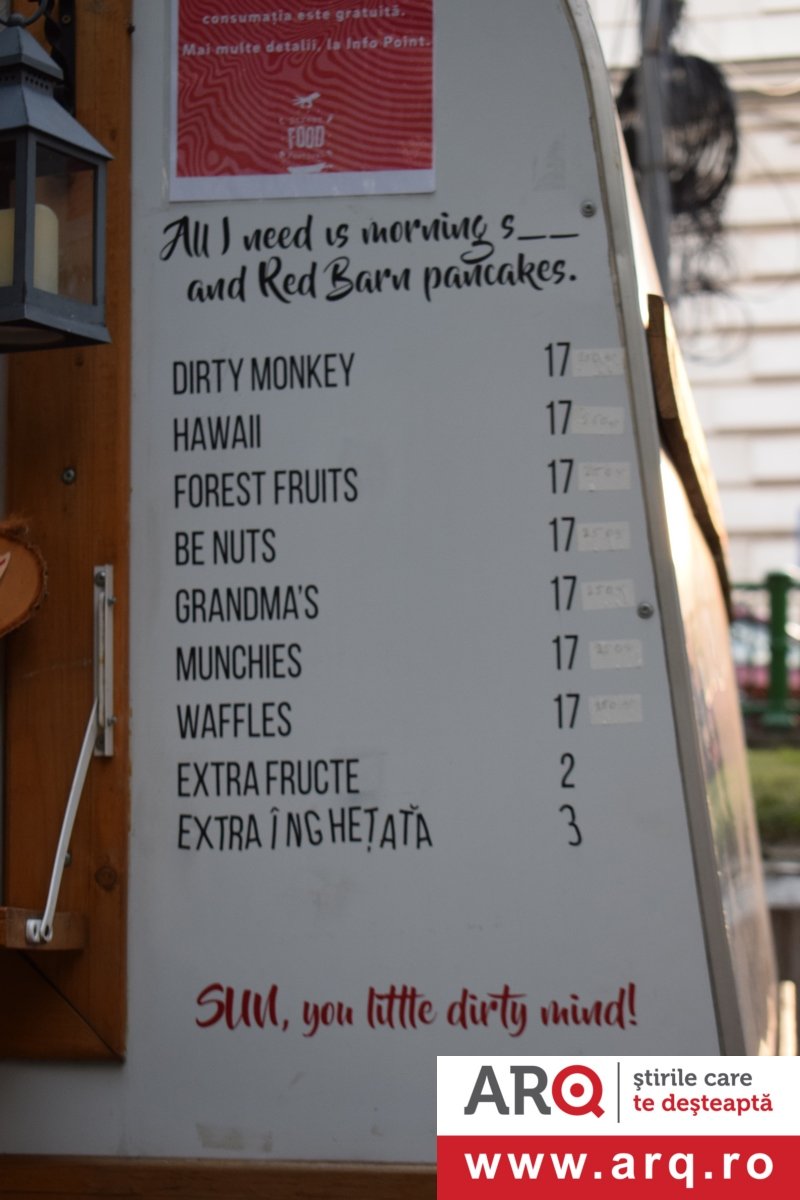 consumația este gratuită.
Mai multe detalii, la Info Point.
FOOD
All I need is morning s__
and Red Barn pancakes.
DIRTY MONKEY 17
HAWAII 17 250gr
FOREST FRUITS 17 250gr
BE NUTS 17 250gr
GRANDMA'S 17 250gr
MUNCHIES 17 250gr
WAFFLES 17
EXTRA FRUCTE 2
EXTRA ÎNGHEȚATĂ 3
SUN, you little dirty mind!
ARQ
știrile care
te deșteaptă
www.arq.ro